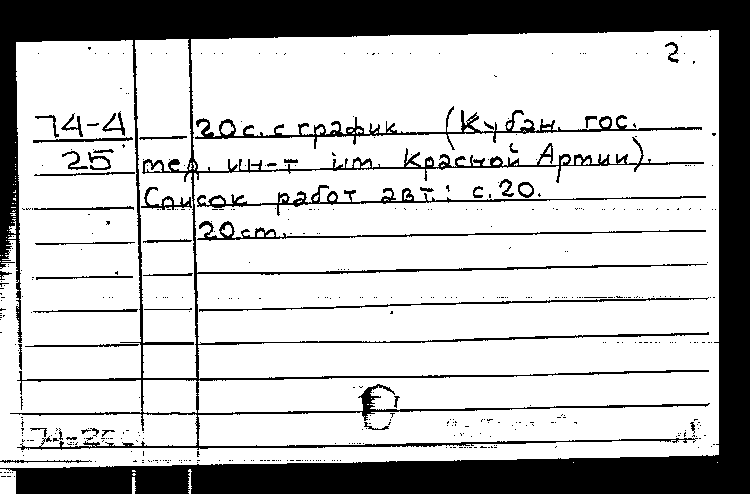 2.
74-4 20 с. с график (Кубан. гос.
25 мед. ин-т им. Красной Армии).
Список работ авт.: с. 20.
20 см.